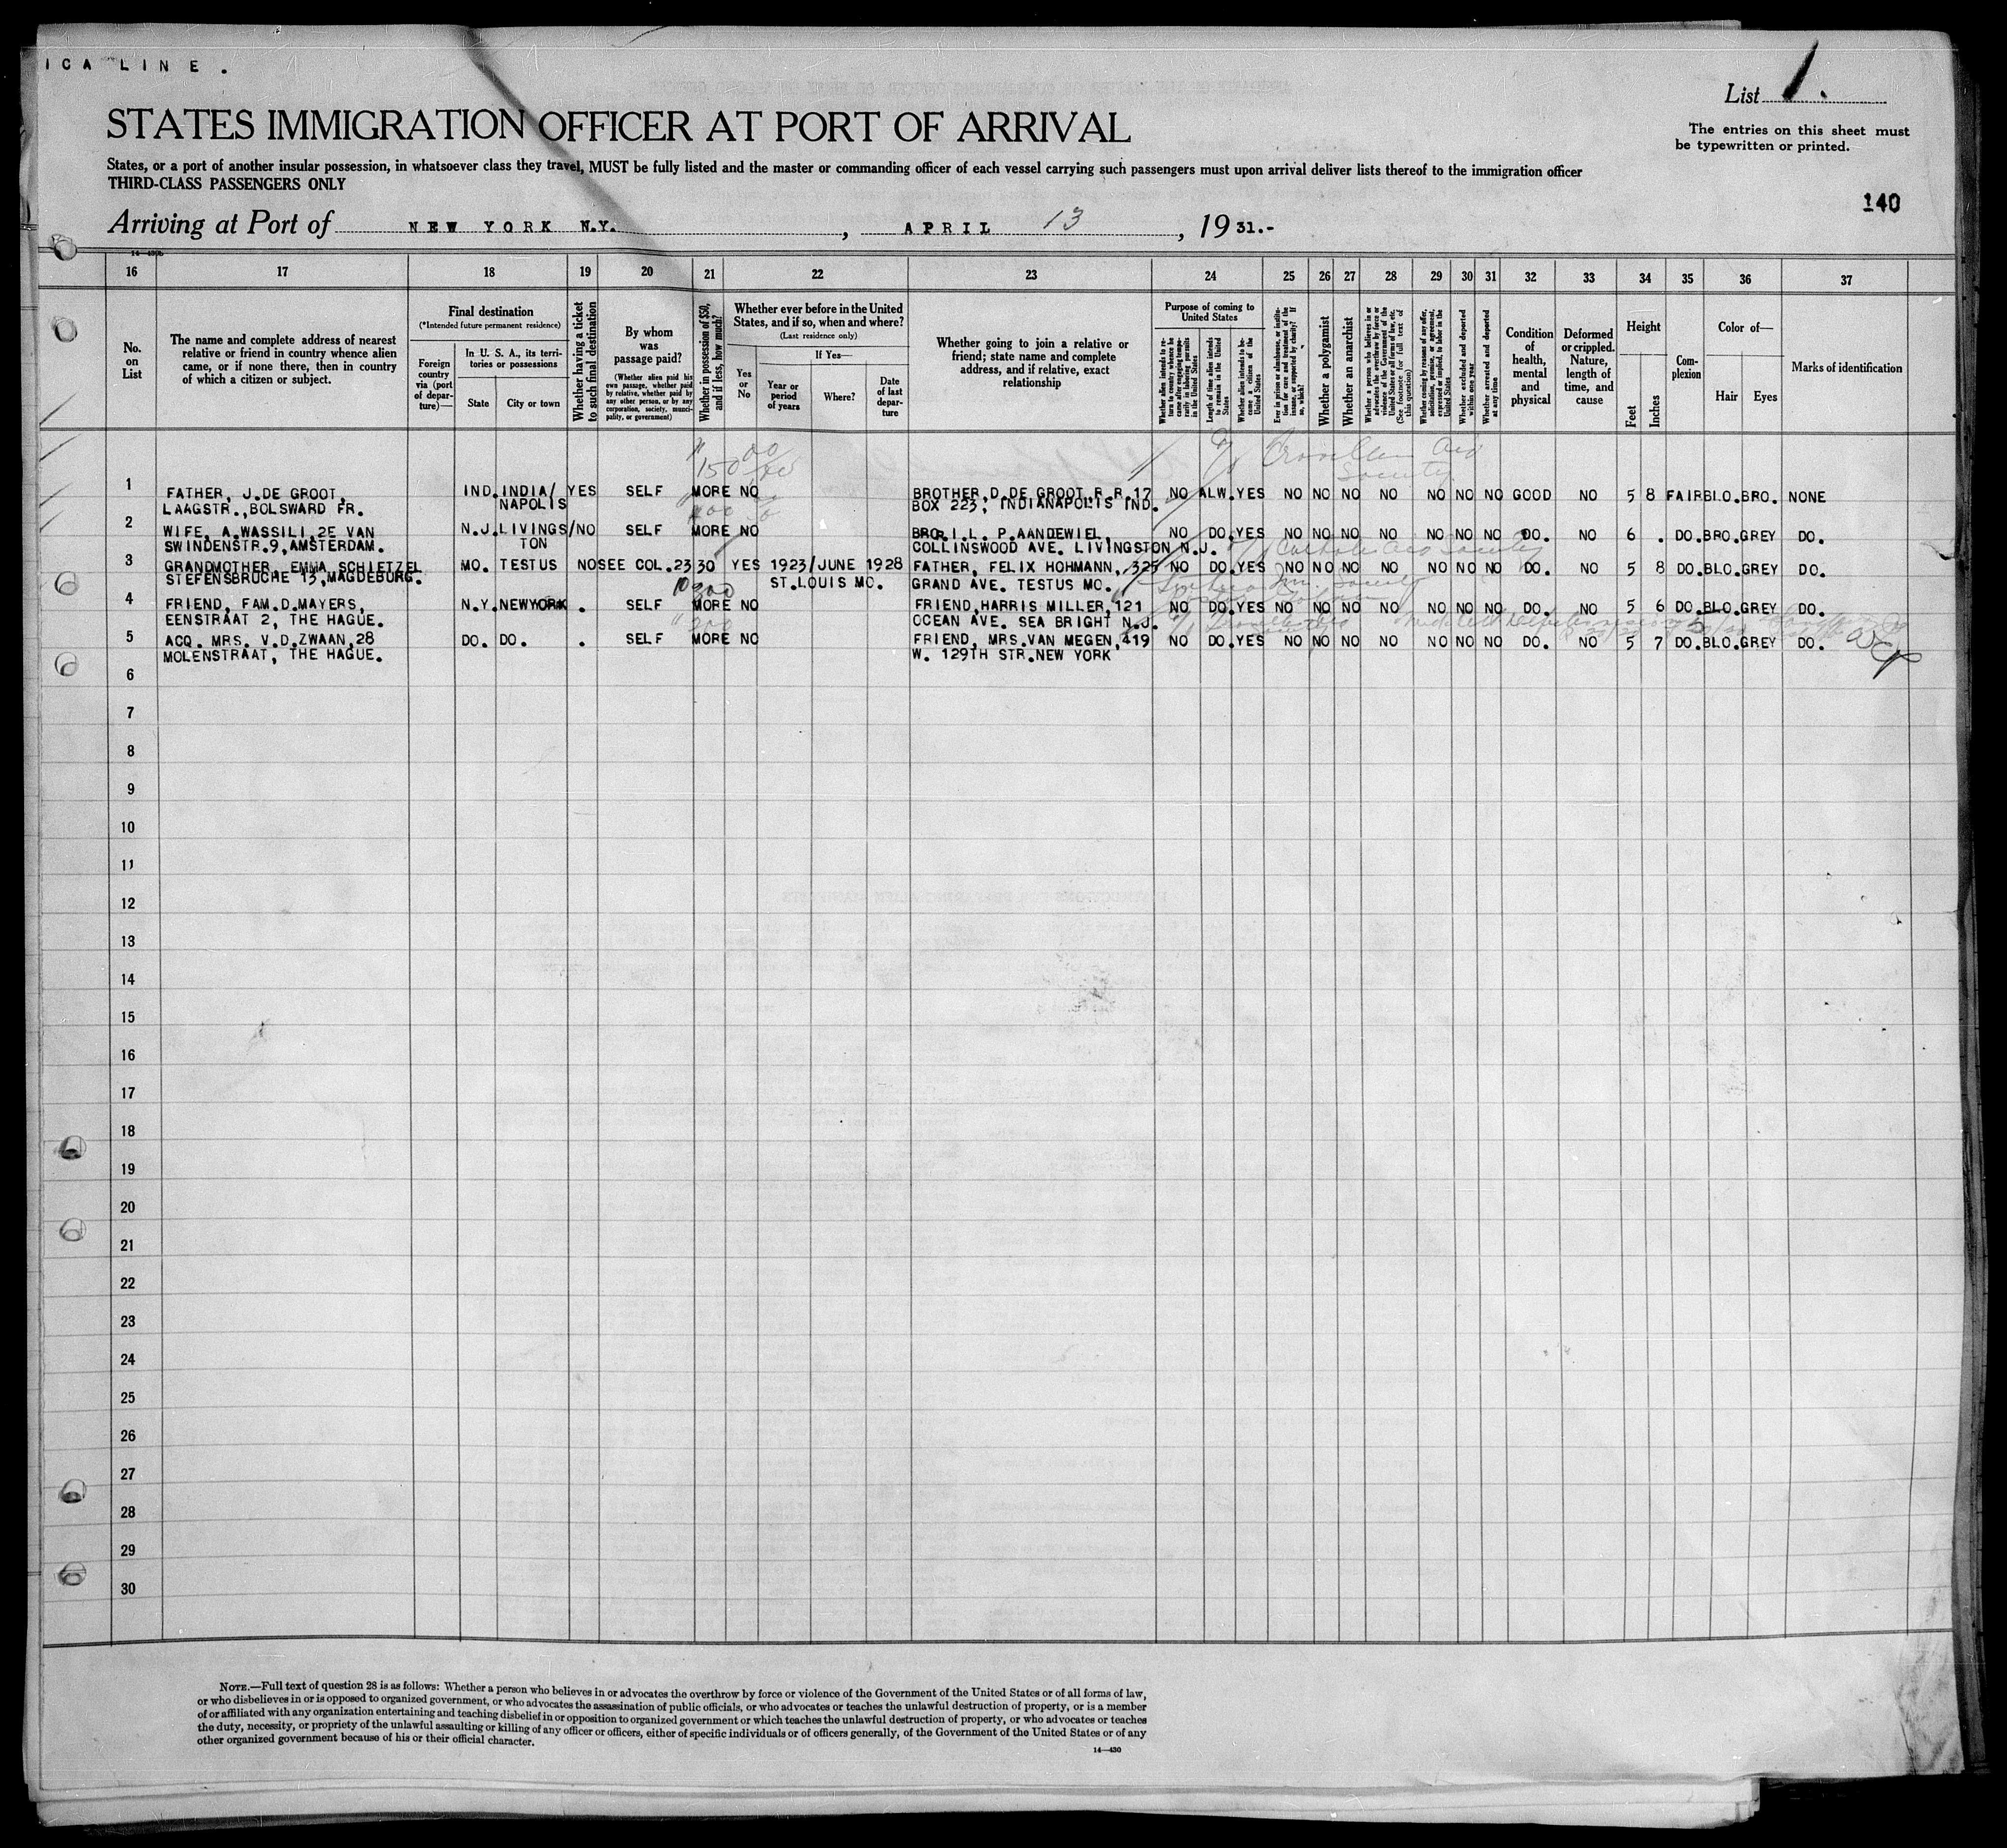 ICA LINE.
List 1.
STATES IMMIGRATION OFFICER AT PORT OF ARRIVAL
The entries on this sheet must
be typewritten or printed.
States, or a port of another insular possession, in whatsoever class they travel, MUST be fully listed and the master or commanding officer of each vessel carrying such passengers must upon arrival deliver lists thereof to the immigration officer
THIRD-CLASS PASSENGERS ONLY
140
Arriving at Port of NEW YORK N.Y. , APRIL 13 , 19 31.-
16 17 18 19 20 21 22 23 24 25 26 27 28 29 30 31 32 33 34 35 36 37
No. on List
The name and complete address of nearest
relative or friend in country whence alien
came, or if none there, then in country
of which a citizen or subject.
Final destination
(*Intended future permanent residence)
Foreign country via (port of departure)—
In U. S. A., its territories or possessions
State
City or town
Whether having a ticket to such final destination
By whom was passage paid?
(Whether alien paid his own passage, whether paid by relative, whether paid by any other person, or by any corporation, society, municipality, or government)
Whether in possession of $50, and if less, how much?
Whether ever before in the United
States, and if so, when and where?
(Last residence only)
Yes or No
If Yes—
Year or period of years
Where?
Date of last departure
Whether going to join a relative or
friend; state name and complete
address, and if relative, exact
relationship
Purpose of coming to United States
Length of time alien intends to remain in the United States
Whether alien intends to become a citizen of the United States
Whether a polygamist
Whether an anarchist
Whether excluded and deported within one year
Whether arrested and deported at any time
Condition of health, mental and physical
Deformed or crippled. Nature, length of time, and cause
Height
Feet
Inches
Complexion
Color of—
Hair
Eyes
Marks of identification
1 FATHER, J.DE GROOT, IND. INDIA/ YES SELF MORE NO BROTHER,D.DE GROOT R.R.17 NO ALW. YES NO NO NO NO NO NO NO GOOD NO 5 8 FAIR BLO. BRO. NONE
LAAGSTR.,BOLSWARD FR. NAPOLIS BOX 223, INDIANAPOLIS IND.
2 WIFE, A.WASSILI,2E VAN N.J. LIVINGS/ NO SELF MORE NO BRO.I.L. P.AANDEWIEL, NO DO. YES NO NO NO NO NO NO NO DO. NO 6 . DO. BRO. GREY DO.
SWINDENSTR.9,AMSTERDAM. TON COLLINSWOOD AVE. LIVINGSTON N.J.
3 GRANDMOTHER, EMMA SCHIETZEL MO. TESTUS NO SEE COL.23 30 YES 1923/JUNE 1928 FATHER, FELIX HOHMANN, 325 NO DO. YES NO NO NO NO NO NO NO DO. NO 5 8 DO. BLO. GREY DO.
STEFENSBRUCHE 13,MAGDEBURG. ST.LOUIS MO. GRAND AVE. TESTUS MO.
4 FRIEND, FAM.D.MAYERS, N.Y. NEWYORK . SELF MORE NO FRIEND,HARRIS MILLER,121 NO DO. YES NO NO NO NO NO NO NO DO. NO 5 6 DO. BLO. GREY DO.
EENSTRAAT 2, THE HAGUE. OCEAN AVE. SEA BRIGHT N.J.
5 ACQ. MRS. V.D.ZWAAN,28 DO. DO. . SELF MORE NO FRIEND, MRS.VAN MEGEN,419 NO DO. YES NO NO NO NO NO NO NO DO. NO 5 7 DO. BLO. GREY DO.
MOLENSTRAAT, THE HAGUE. W. 129TH STR.NEW YORK
6
7
8
9
10
11
12
13
14
15
16
17
18
19
20
21
22
23
24
25
26
27
28
29
30
NOTE.—Full text of question 28 is as follows: Whether a person who believes in or advocates the overthrow by force or violence of the Government of the United States or of all forms of law,
or who disbelieves in or is opposed to organized government, or who advocates the assassination of public officials, or who advocates or teaches the unlawful destruction of property, or is a member
of or affiliated with any organization entertaining and teaching disbelief in or opposition to organized government or which teaches the unlawful destruction of property, or who advocates or teaches
the duty, necessity, or propriety of the unlawful assaulting or killing of any officer or officers, either of specific individuals or of officers generally, of the Government of the United States or of any
other organized government because of his or their official character.
14—430